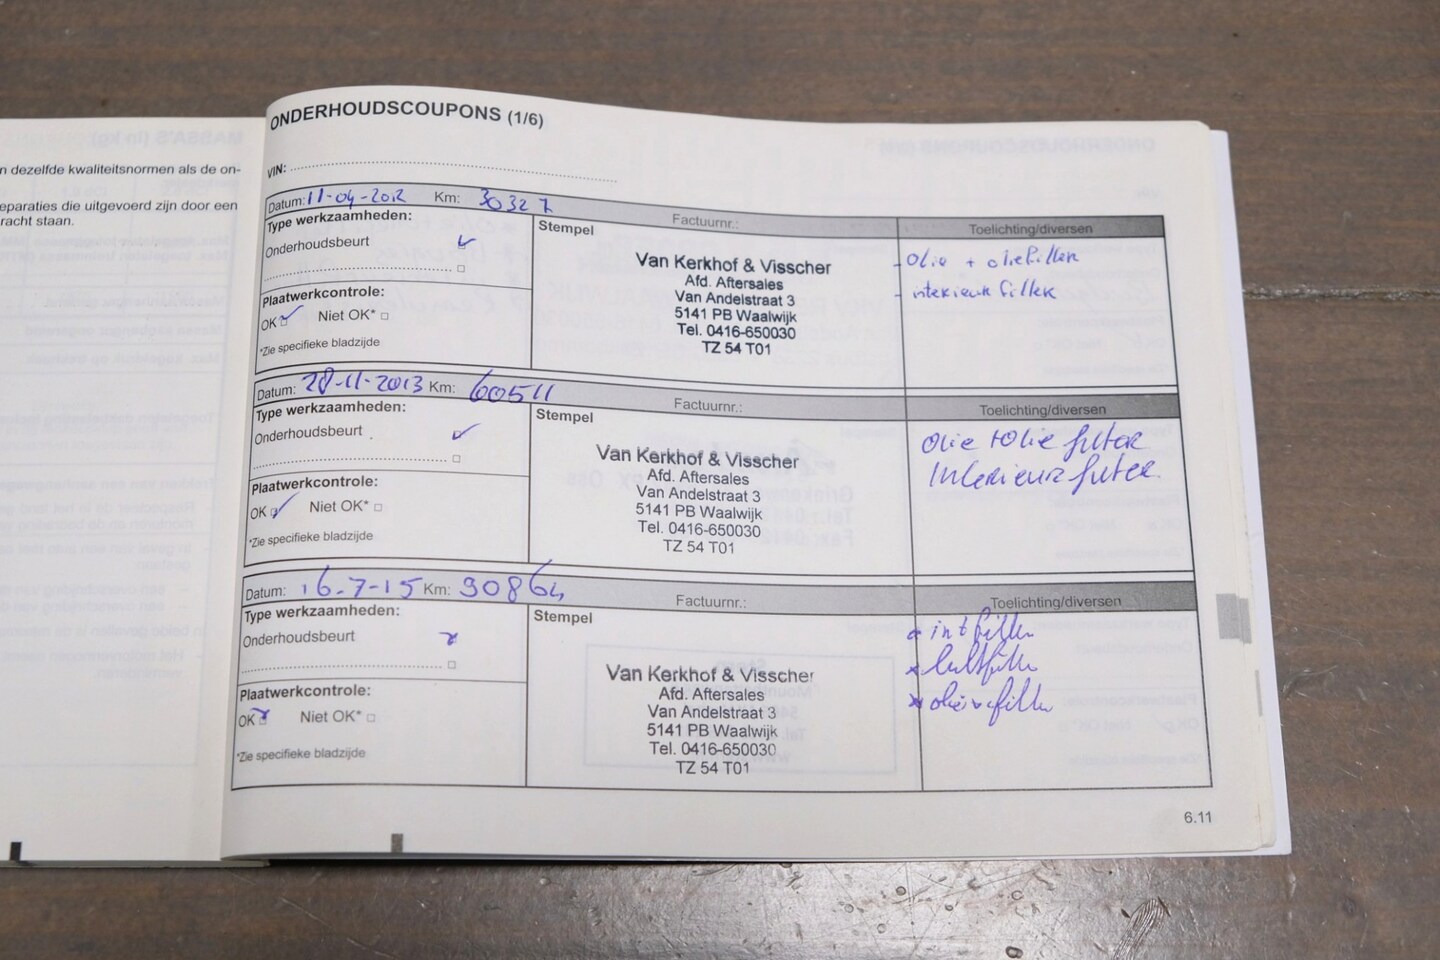 n dezelfde kwaliteitsnormen als de on-
eparaties die uitgevoerd zijn door een
racht staan.
ONDERHOUDSCOUPONS (1/6)
VIN:
Datum: 11-04-2012 Km: 30327
Factuurnr.:
Toelichting/diversen
Type werkzaamheden:
Onderhoudsbeurt
Plaatwerkcontrole:
OK Niet OK*
*Zie specifieke bladzijde
Stempel
Van Kerkhof & Visscher
Afd. Aftersales
Van Andelstraat 3
5141 PB Waalwijk
Tel. 0416-650030
TZ 54 T01
- Olie + oliefilter
- interieur filter
Datum: 28-11-2013 Km: 60511
Factuurnr.:
Toelichting/diversen
Type werkzaamheden:
Onderhoudsbeurt
Plaatwerkcontrole:
OK Niet OK*
*Zie specifieke bladzijde
Stempel
Van Kerkhof & Visscher
Afd. Aftersales
Van Andelstraat 3
5141 PB Waalwijk
Tel. 0416-650030
TZ 54 T01
Olie + Olie filter
Interieur filter
Datum: 16-7-15 Km: 90864
Factuurnr.:
Toelichting/diversen
Type werkzaamheden:
Onderhoudsbeurt
Plaatwerkcontrole:
OK Niet OK*
*Zie specifieke bladzijde
Stempel
Van Kerkhof & Visscher
Afd. Aftersales
Van Andelstraat 3
5141 PB Waalwijk
Tel. 0416-650030
TZ 54 T01
* int filter
* luchtfilter
6.11